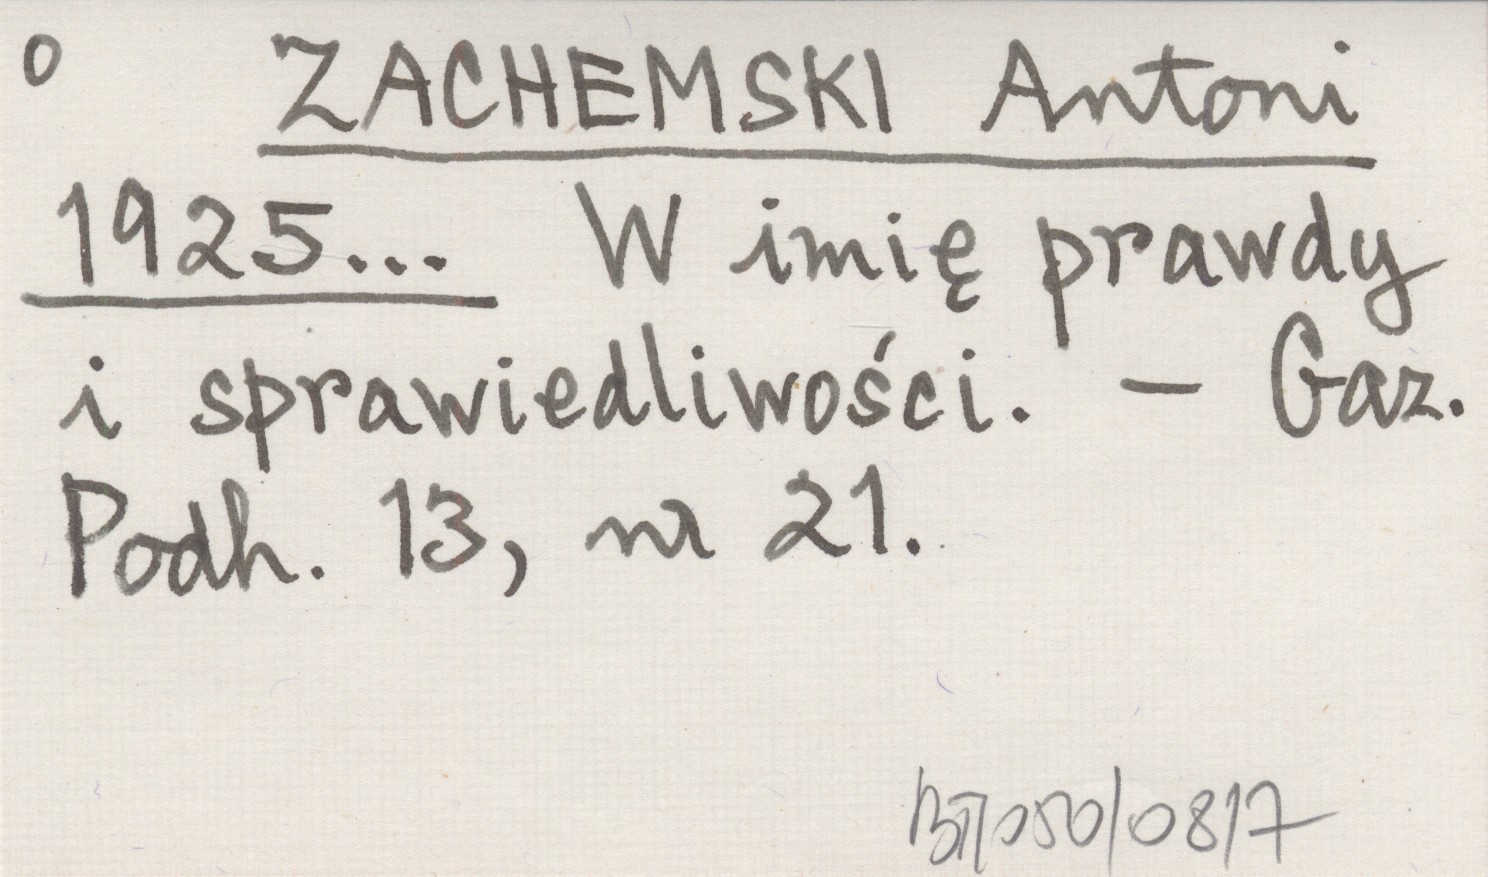 o ZACHEMSKI Antoni
1925... W imię prawdy
i sprawiedliwości. – Gaz.
Podh. 13, nr 21.
BT/050/08/7